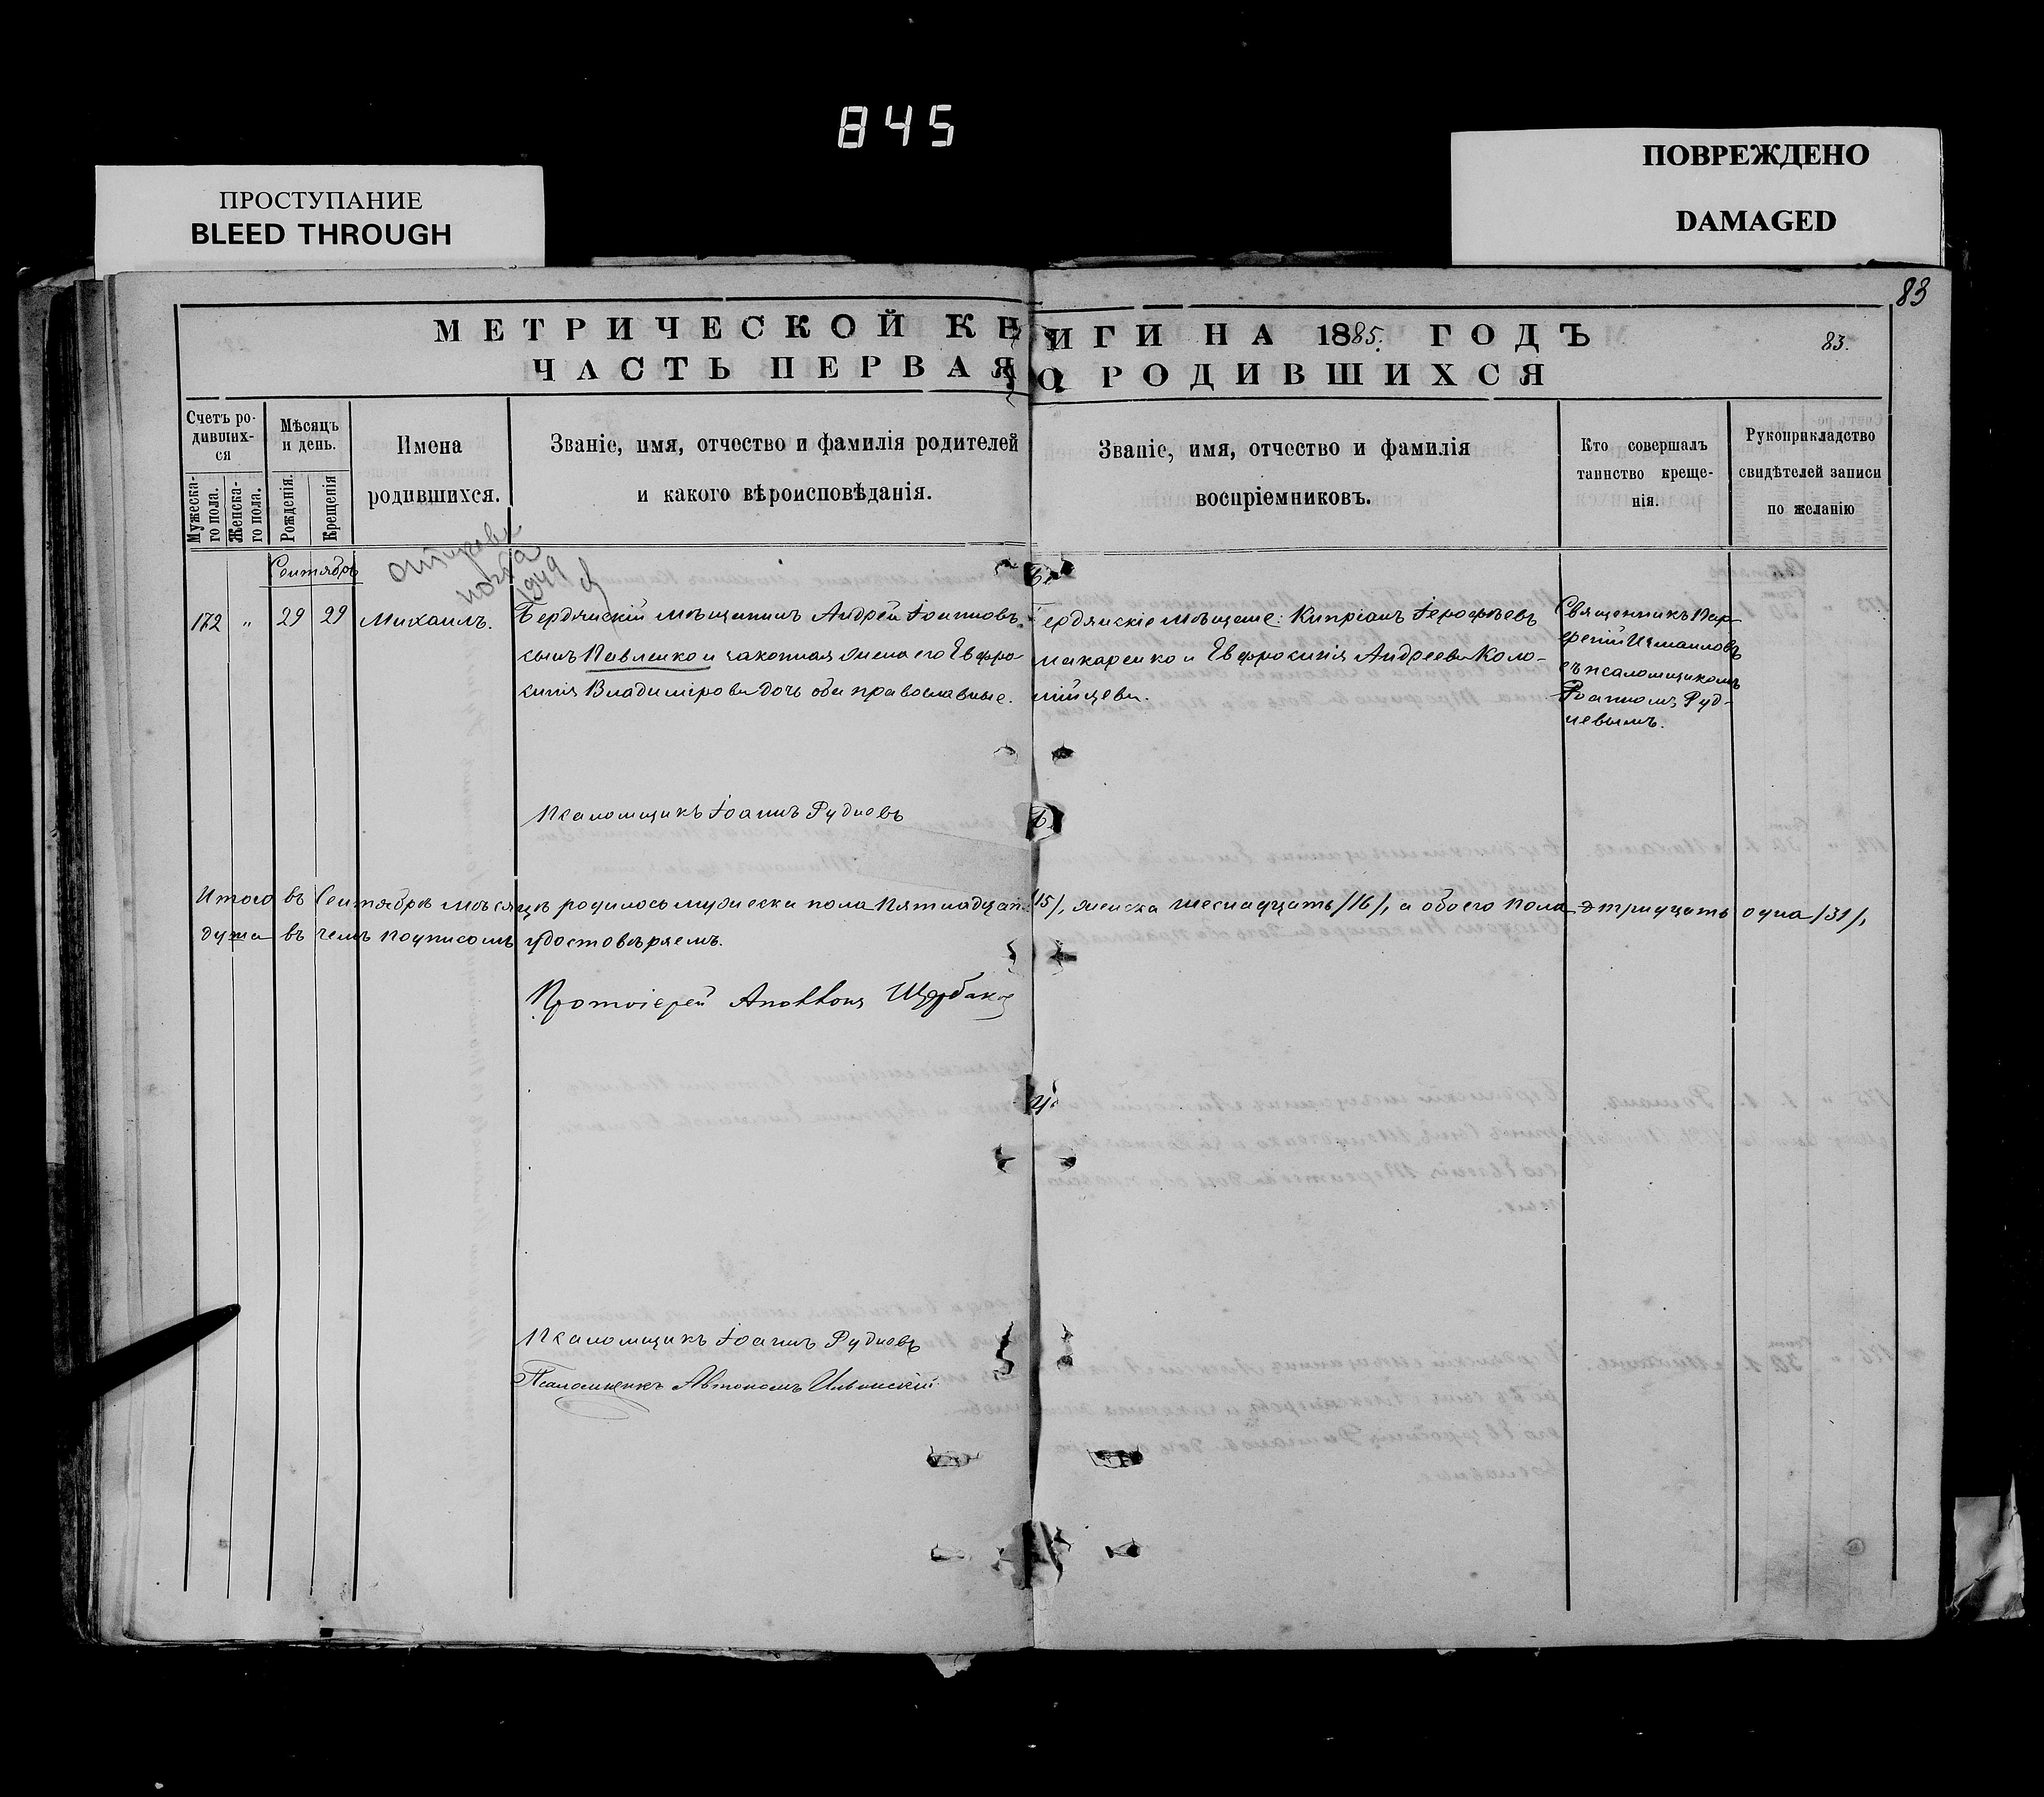 845
ПРОСТУПАНИЕ
BLEED THROUGH
ПОВРЕЖДЕНО
DAMAGED
83
МЕТРИЧЕСКОЙ КНИГИ НА 1885 ГОДЪ
83.
ЧАСТЬ ПЕРВАЯ О РОДИВШИХСЯ
Счетъ ро-
дивших-
ся
Мужеска-
го пола.
Женска-
го пола.
Мѣсяцъ
и день.
Рожденія.
Крещенія
Имена
родившихся.
Званіе, имя, отчество и фамилія родителей
и какого вѣроисповѣданія.
Званіе, имя, отчество и фамилія
воспріемниковъ.
Кто совершалъ
таинство креще-
нія.
Рукоприкладство
свидѣтелей записи
по желанію
Сентябрь
1949
172 " 29 29 Михаилъ.
Бердянскій мѣщанинъ Андрей Іоанновъ
сынъ Павленко и законная жена его Евфро-
синія Владимірова дочь оба православные.
Бердянскіе мѣщане: Кипріанъ Іерофѣевъ
Макаренко и Евфросинія Андреева Коло-
мійцева.
Священникъ Пар-
феній Измаиловъ
съ псаломщикомъ
Іоанномъ Руд-
невымъ.
Псаломщикъ Іоаннъ Рудневъ
Итого въ Сентябрѣ мѣсяцѣ родилось мужеска пола пятнадцать /15/, женска шеснадцать /16/, а обоего пола тридцать одна /31/,
душа въ чемъ подписомъ удостовѣряемъ.
Протоіерей Аполлонъ Щербаков
Псаломщикъ Іоаннъ Рудневъ
Псаломщикъ Автономъ Ильинскій